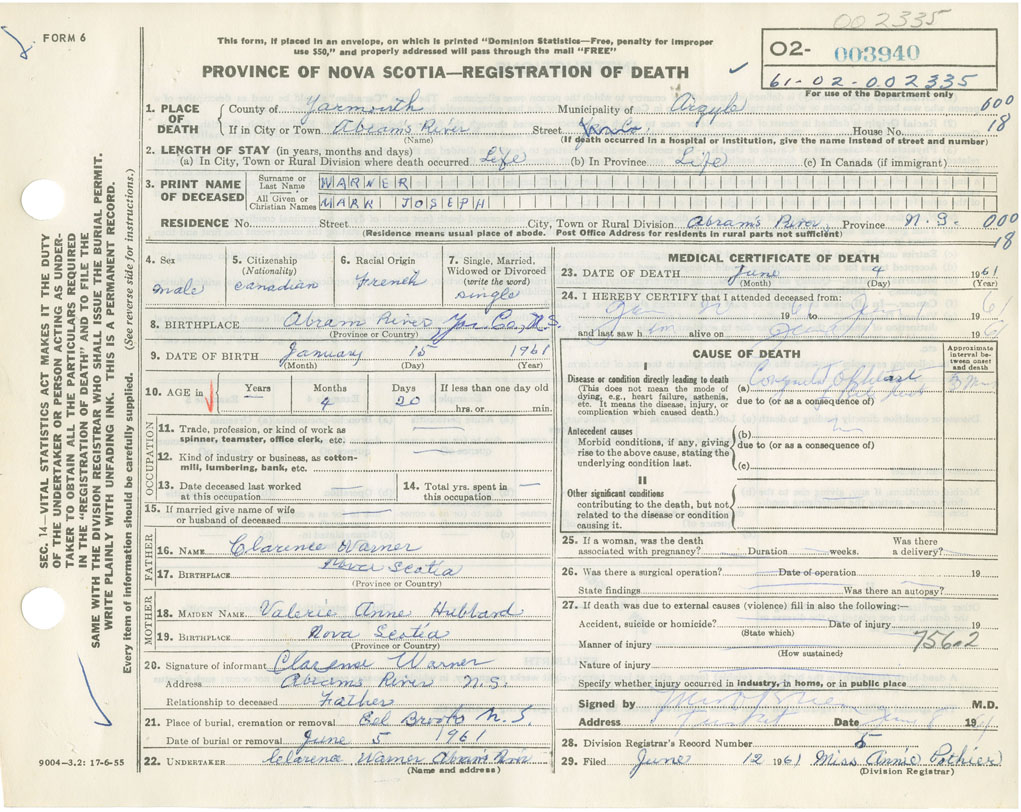 002335
FORM 6
This form, if placed in an envelope, on which is printed "Dominion Statistics—Free, penalty for improper
use $50," and properly addressed will pass through the mail "FREE"
PROVINCE OF NOVA SCOTIA—REGISTRATION OF DEATH
O2- 003940
61-02-002335
For use of the Department only
SEC. 14—VITAL STATISTICS ACT MAKES IT THE DUTY
OF THE UNDERTAKER OR PERSON ACTING AS UNDER-
TAKER TO OBTAIN ALL THE PARTICULARS REQUIRED
IN THE "REGISTRATION OF DEATH" AND TO FILE THE
SAME WITH THE DIVISION REGISTRAR WHO SHALL ISSUE THE BURIAL PERMIT.
WRITE PLAINLY WITH UNFADING INK. THIS IS A PERMANENT RECORD.
Every item of information should be carefully supplied. (See reverse side for instructions.)
1. PLACE OF DEATH
County of Yarmouth Municipality of Argyle 600
If in City or Town Abram's River Street Yar. Co. House No. 18
(Name) (If death occurred in a hospital or institution, give the name instead of street and number)
2. LENGTH OF STAY (in years, months and days)
(a) In City, Town or Rural Division where death occurred Life (b) In Province Life (c) In Canada (if immigrant)
3. PRINT NAME OF DECEASED
Surname or Last Name WARNER
All Given or Christian Names MARK JOSEPH
RESIDENCE No. Street City, Town or Rural Division Abram's River Province N.S. 000
(Residence means usual place of abode. Post Office Address for residents in rural parts not sufficient) 18
4. Sex male
5. Citizenship (Nationality) Canadian
6. Racial Origin French
7. Single, Married, Widowed or Divorced (write the word) single
8. BIRTHPLACE Abram River Yar. Co. N.S.
(Province or Country)
9. DATE OF BIRTH January 15 1961
(Month) (Day) (Year)
10. AGE in Years — Months 4 Days 20 If less than one day old hrs. or min.
OCCUPATION
11. Trade, profession, or kind of work as
spinner, teamster, office clerk, etc. —
12. Kind of industry or business, as cotton-
mill, lumbering, bank, etc. —
13. Date deceased last worked
at this occupation —
14. Total yrs. spent in
this occupation —
15. If married give name of wife
or husband of deceased —
FATHER
16. NAME Clarence Warner
17. BIRTHPLACE Nova Scotia
(Province or Country)
MOTHER
18. MAIDEN NAME Valerie Anne Hubbard
19. BIRTHPLACE Nova Scotia
(Province or Country)
20. Signature of informant Clarense Warner
Address Abrams River N.S.
Relationship to deceased Father
21. Place of burial, cremation or removal Bel Brooks N.S
Date of burial or removal June 5 1961
22. UNDERTAKER Clarence Warner Abram's River
(Name and address)
9004—3.2: 17-6-55
MEDICAL CERTIFICATE OF DEATH
23. DATE OF DEATH June 4 1961
(Month) (Day) (Year)
24. I HEREBY CERTIFY that I attended deceased from:
19 61 to 61
and last saw him alive on June 19 61
CAUSE OF DEATH
Approximate interval between onset and death
I
Disease or condition directly leading to death
(This does not mean the mode of
dying, e.g., heart failure, asthenia,
etc. It means the disease, injury, or
complication which caused death.)
(a) of heart
due to (or as a consequence of)
Antecedent causes
Morbid conditions, if any, giving
rise to the above cause, stating the
underlying condition last.
(b)
due to (or as a consequence of)
(c)
II
Other significant conditions
contributing to the death, but not
related to the disease or condition
causing it.
25. If a woman, was the death
associated with pregnancy? Duration weeks. Was there
a delivery?
26. Was there a surgical operation? Date of operation 19
State findings Was there an autopsy?
27. If death was due to external causes (violence) fill in also the following:—
Accident, suicide or homicide? Date of injury 19
(State which)
Manner of injury 756.2
(How sustained)
Nature of injury
Specify whether injury occurred in industry, in home, or in public place
Signed by M.D.
Address Tusket Date June 8 1961
28. Division Registrar's Record Number 5
29. Filed June 12 1961 Miss Annie Pothier
(Division Registrar)